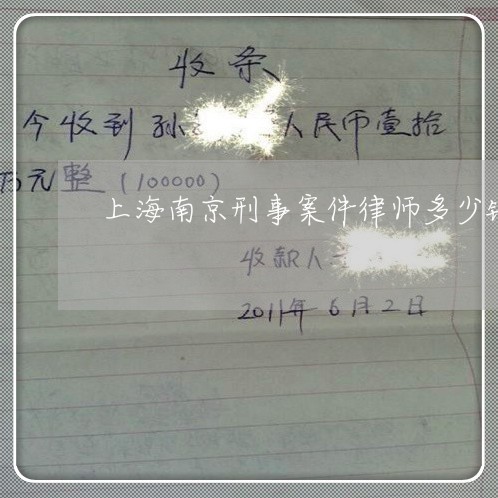 收条
今收到孙 人民币壹拾
万元整（100000）
上海南京刑事案件律师多少
收款人
2011年6月2日